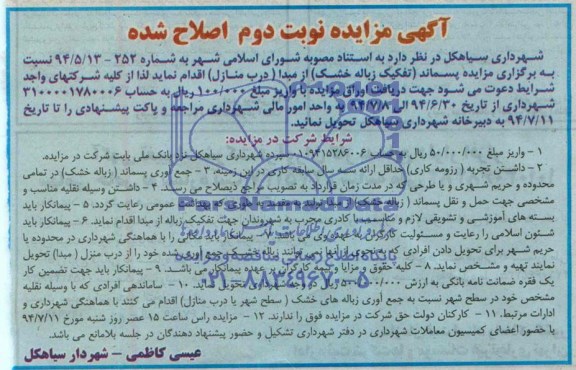 آگهی مزایده نوبت دوم اصلاح شده
شهرداری سیاهکل در نظر دارد به استناد مصوبه شورای اسلامی شهر به شماره ۲۵۲ - ۹۴/۵/۱۳ نسبت
به برگزاری مزایده پسماند (تفکیک زباله خشک) از مبدا ( درب منازل) اقدام نماید لذا از کلیه شرکتهای واجد
شرایط دعوت می شود جهت دریافت اوراق مزایده با واریز مبلغ ۱۰۰/۰۰۰ ریال به حساب ۳۱۰۰۰۰۱۷۸۰۰۰۶
شهرداری از تاریخ ۹۴/۶/۳۰ الی ۹۴/۷/۸ به واحد امور مالی شهرداری مراجعه و پاکت پیشنهادی را تا تاریخ
۹۴/۷/۱۱ به دبیرخانه شهرداری سیاهکل تحویل نمائید.
شرایط شرکت در مزایده:
۱ - واریز مبلغ ۵۰/۰۰۰/۰۰۰ ریال به حساب ۰۱۰۹۴۱۵۲۸۶۰۰۶ سپرده شهرداری سیاهکل نزد بانک ملی بابت شرکت در مزایده.
۲ - داشتن تجربه (رزومه کاری) حداقل ارائه سه سال سابقه کاری در این زمینه. ۳ - جمع آوری پسماند ( زباله خشک) در تمامی
محدوده و حریم شهری و یا طرحی که در مدت زمان قرارداد به تصویب مراجع ذیصلاح می رسد. ۴ - داشتن وسیله نقلیه مناسب و
مشخص جهت حمل و نقل پسماند ( زباله خشک) از مبدا تولید به مقصد به نحوی که بهداشت عمومی رعایت گردد. ۵ - پیمانکار باید
بسته های آموزشی و تشویقی لازم و متناسب با کادری مجرب به شهروندان جهت تفکیک زباله از مبدا اقدام نماید. ۶ - پیمانکار باید
شئون اسلامی را رعایت و مسئولیت کارگران به عهده وی می باشد. ۷ - پیمانکار باید مکانی را با هماهنگی شهرداری در محدوده یا
حریم شهر برای تحویل دادن افرادی که بصورت انفرادی می توانند زباله خشک جمع آوری شده خود را از درب منزل ( مبدا) تحویل
نمایند تهیه و مشخص نماید. ۸ - کلیه حقوق و مزایا و بیمه کارگران بر عهده پیمانکار می باشد. ۹ - پیمانکار باید جهت تضمین کار
یک فقره ضمانت نامه بانکی به ارزش ریال تحویل نماید. ۱۰ - ساماندهی افرادی که با وسیله نقلیه
مشخص خود در سطح شهر نسبت به جمع آوری زباله های خشک ( سطح شهر یا درب منازل) اقدام می کنند با هماهنگی شهرداری و
ادارات مرتبط. ۱۱ - کارکنان دولت حق شرکت در مزایده فوق را ندارند. ۱۲ - مزایده راس ساعت ۱۵ عصر روز شنبه مورخ ۹۴/۷/۱۱
با حضور اعضای کمیسیون معاملات شهرداری در دفتر شهرداری تشکیل و حضور پیشنهاد دهندگان در جلسه بلامانع می باشد.
عیسی کاظمی - شهردار سیاهکل
پایگاه اطلاع رسانی مناقصه و مزایده
۰۲۱-۸۸۳۴۹۶۷۰-۵